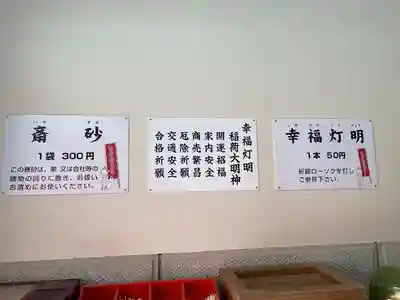 斎砂
1袋 300円
この斎砂は、家 又は会社等の
建物の回りに撒き、お祓い
お清めにお使いください。
幸福灯明
稲荷大明神
開運招福
家内安全
商売繁昌
厄除祈願
交通安全
合格祈願
幸福灯明
1本 50円
祈願ローソクを灯し
ご参拝下さい。